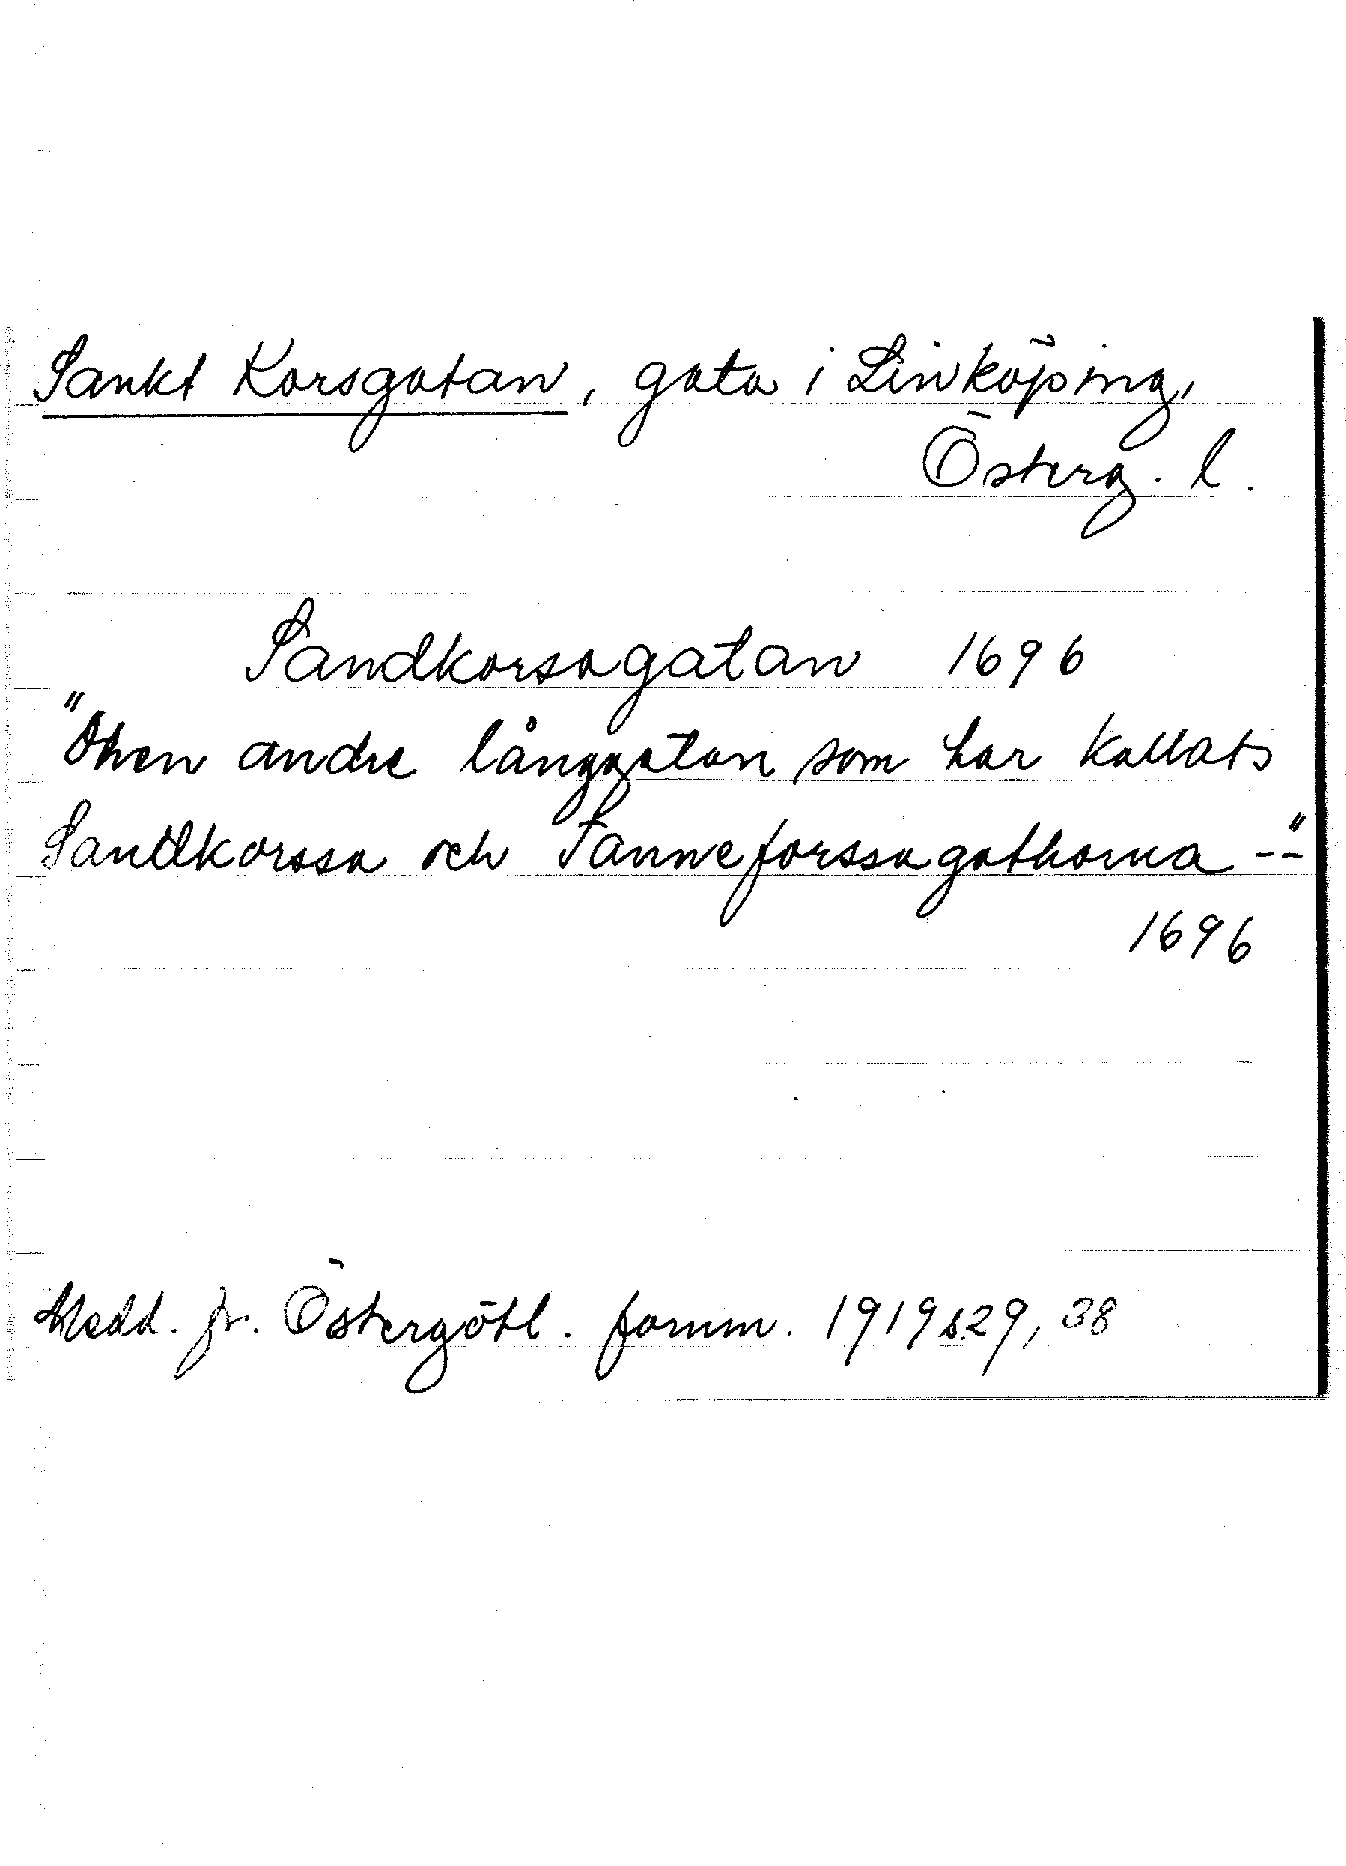 Sankt Korsgatan, gata i Linköping,
Österg. l.
Sandkorsagatan 1696
"Then andre långgatan som har kallats
Sandkorssa och Tanneforssagathorna --"
1696
Medd. fr. Östergötl. fornm. 1919 s. 29, 38